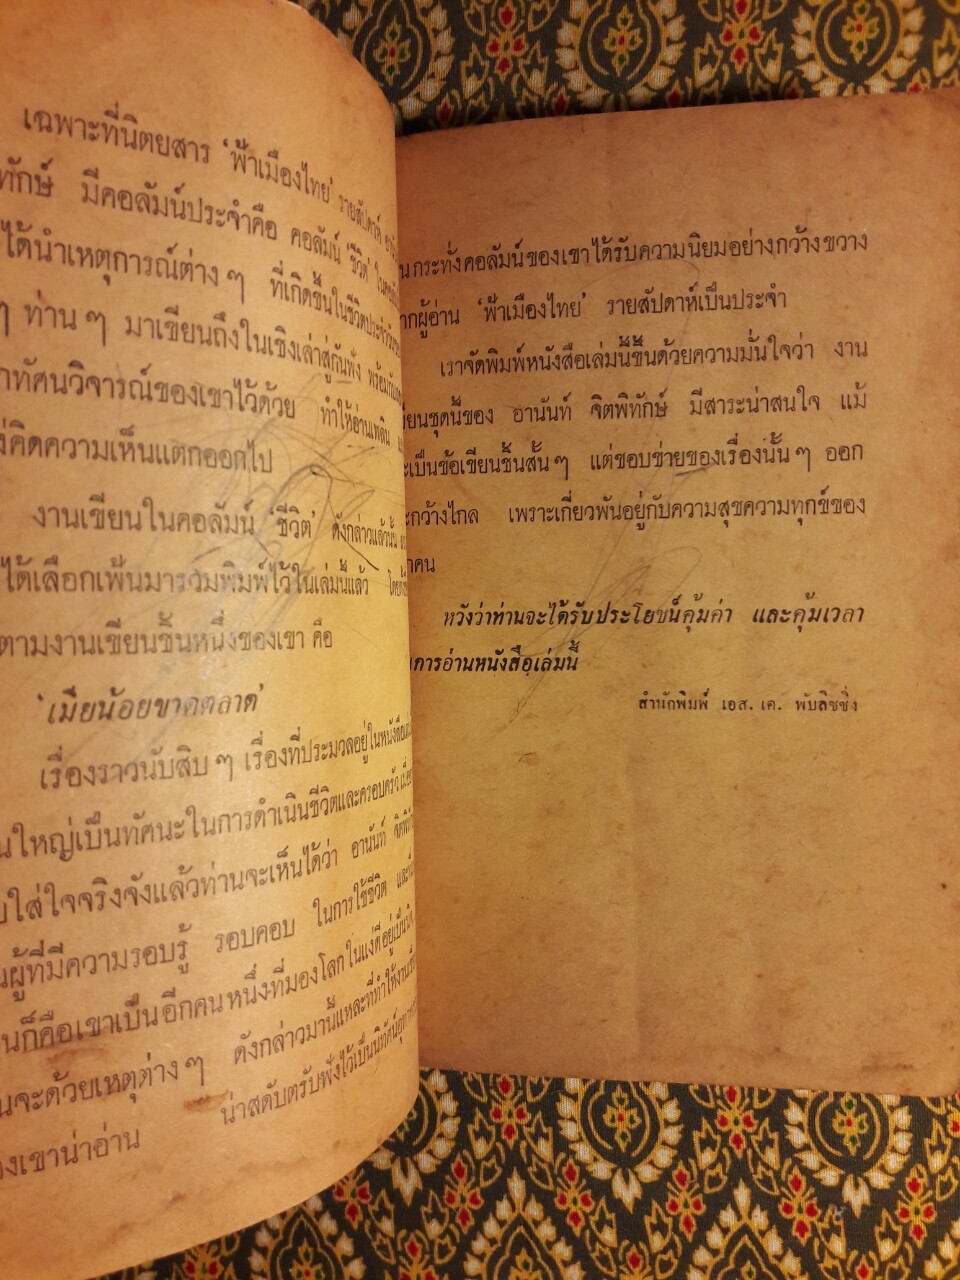 เฉพาะที่นิตยสาร 'ฟ้าเมืองไทย' รายสัปดาห์
ทักษ์ มีคอลัมน์ประจำคือ คอลัมน์ 'ชีวิต'
ได้นำเหตุการณ์ต่าง ๆ ที่เกิดขึ้นในชีวิตประจำวัน
ๆ ท่าน ๆ มาเขียนถึงในเชิงเล่าสู่กันฟัง
ทัศนวิจารณ์ของเขาไว้ด้วย ทำให้อ่านเพลิน
คิดความเห็นแตกออกไป
งานเขียนในคอลัมน์ 'ชีวิต' ดังกล่าวแล้วนั้น
ได้เลือกเฟ้นมารวมพิมพ์ไว้ในเล่มนี้แล้ว
ตามงานเขียนชิ้นหนึ่งของเขา คือ
'เมียน้อยขาดตลาด'
เรื่องราวนับสิบ ๆ เรื่องที่ประมวลอยู่ในหนังสือ
ใหญ่เป็นทัศนะในการดำเนินชีวิตและครอบครัว
ใส่ใจจริงจังแล้วท่านจะเห็นได้ว่า อานันท์
ผู้ที่มีความรอบรู้ รอบคอบ ในการใช้ชีวิต
ก็คือเขาเป็นอีกคนหนึ่งที่มองโลกในแง่ดีอยู่เป็น
จะด้วยเหตุต่าง ๆ ดังกล่าวมานี้แหละที่ทำให้งาน
ของเขาน่าอ่าน น่าสดับตรับฟังไว้เป็นนิทัศน์
กระทั่งคอลัมน์ของเขาได้รับความนิยมอย่างกว้างขวาง
ผู้อ่าน 'ฟ้าเมืองไทย' รายสัปดาห์เป็นประจำ
เราจัดพิมพ์หนังสือเล่มนี้ขึ้นด้วยความมั่นใจว่า งาน
เขียนชุดนี้ของ อานันท์ จิตพิทักษ์ มีสาระน่าสนใจ แม้
จะเป็นข้อเขียนชิ้นสั้น ๆ แต่ขอบข่ายของเรื่องนั้น ๆ ออก
จะกว้างไกล เพราะเกี่ยวพันอยู่กับความสุขความทุกข์ของ
คน
หวังว่าท่านจะได้รับประโยชน์คุ้มค่า และคุ้มเวลา
การอ่านหนังสือเล่มนี้
สำนักพิมพ์ เอส. เค. พับลิชชิ่ง